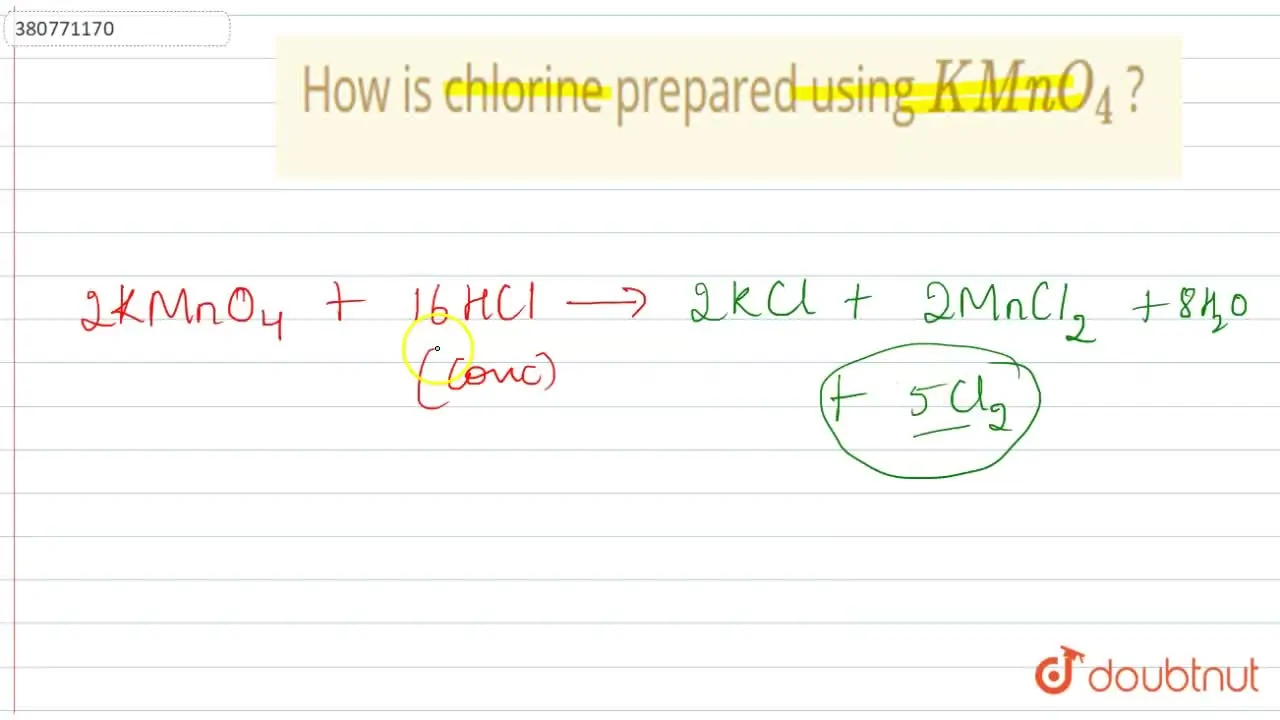 380771170
How is chlorine prepared using KMnO₄ ?
2KMnO₄ + 16HCl → 2KCl + 2MnCl₂ + 8H₂O
(conc) + 5Cl₂
doubtnut